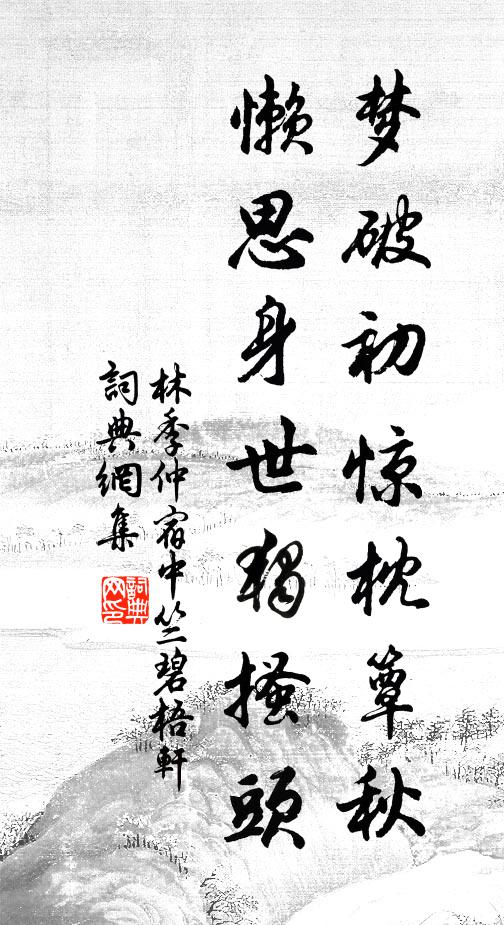 梦破初惊枕簟秋
懒思身世独搔頭
林季仲宿中竺碧梧軒
詞典網集
詞典网印